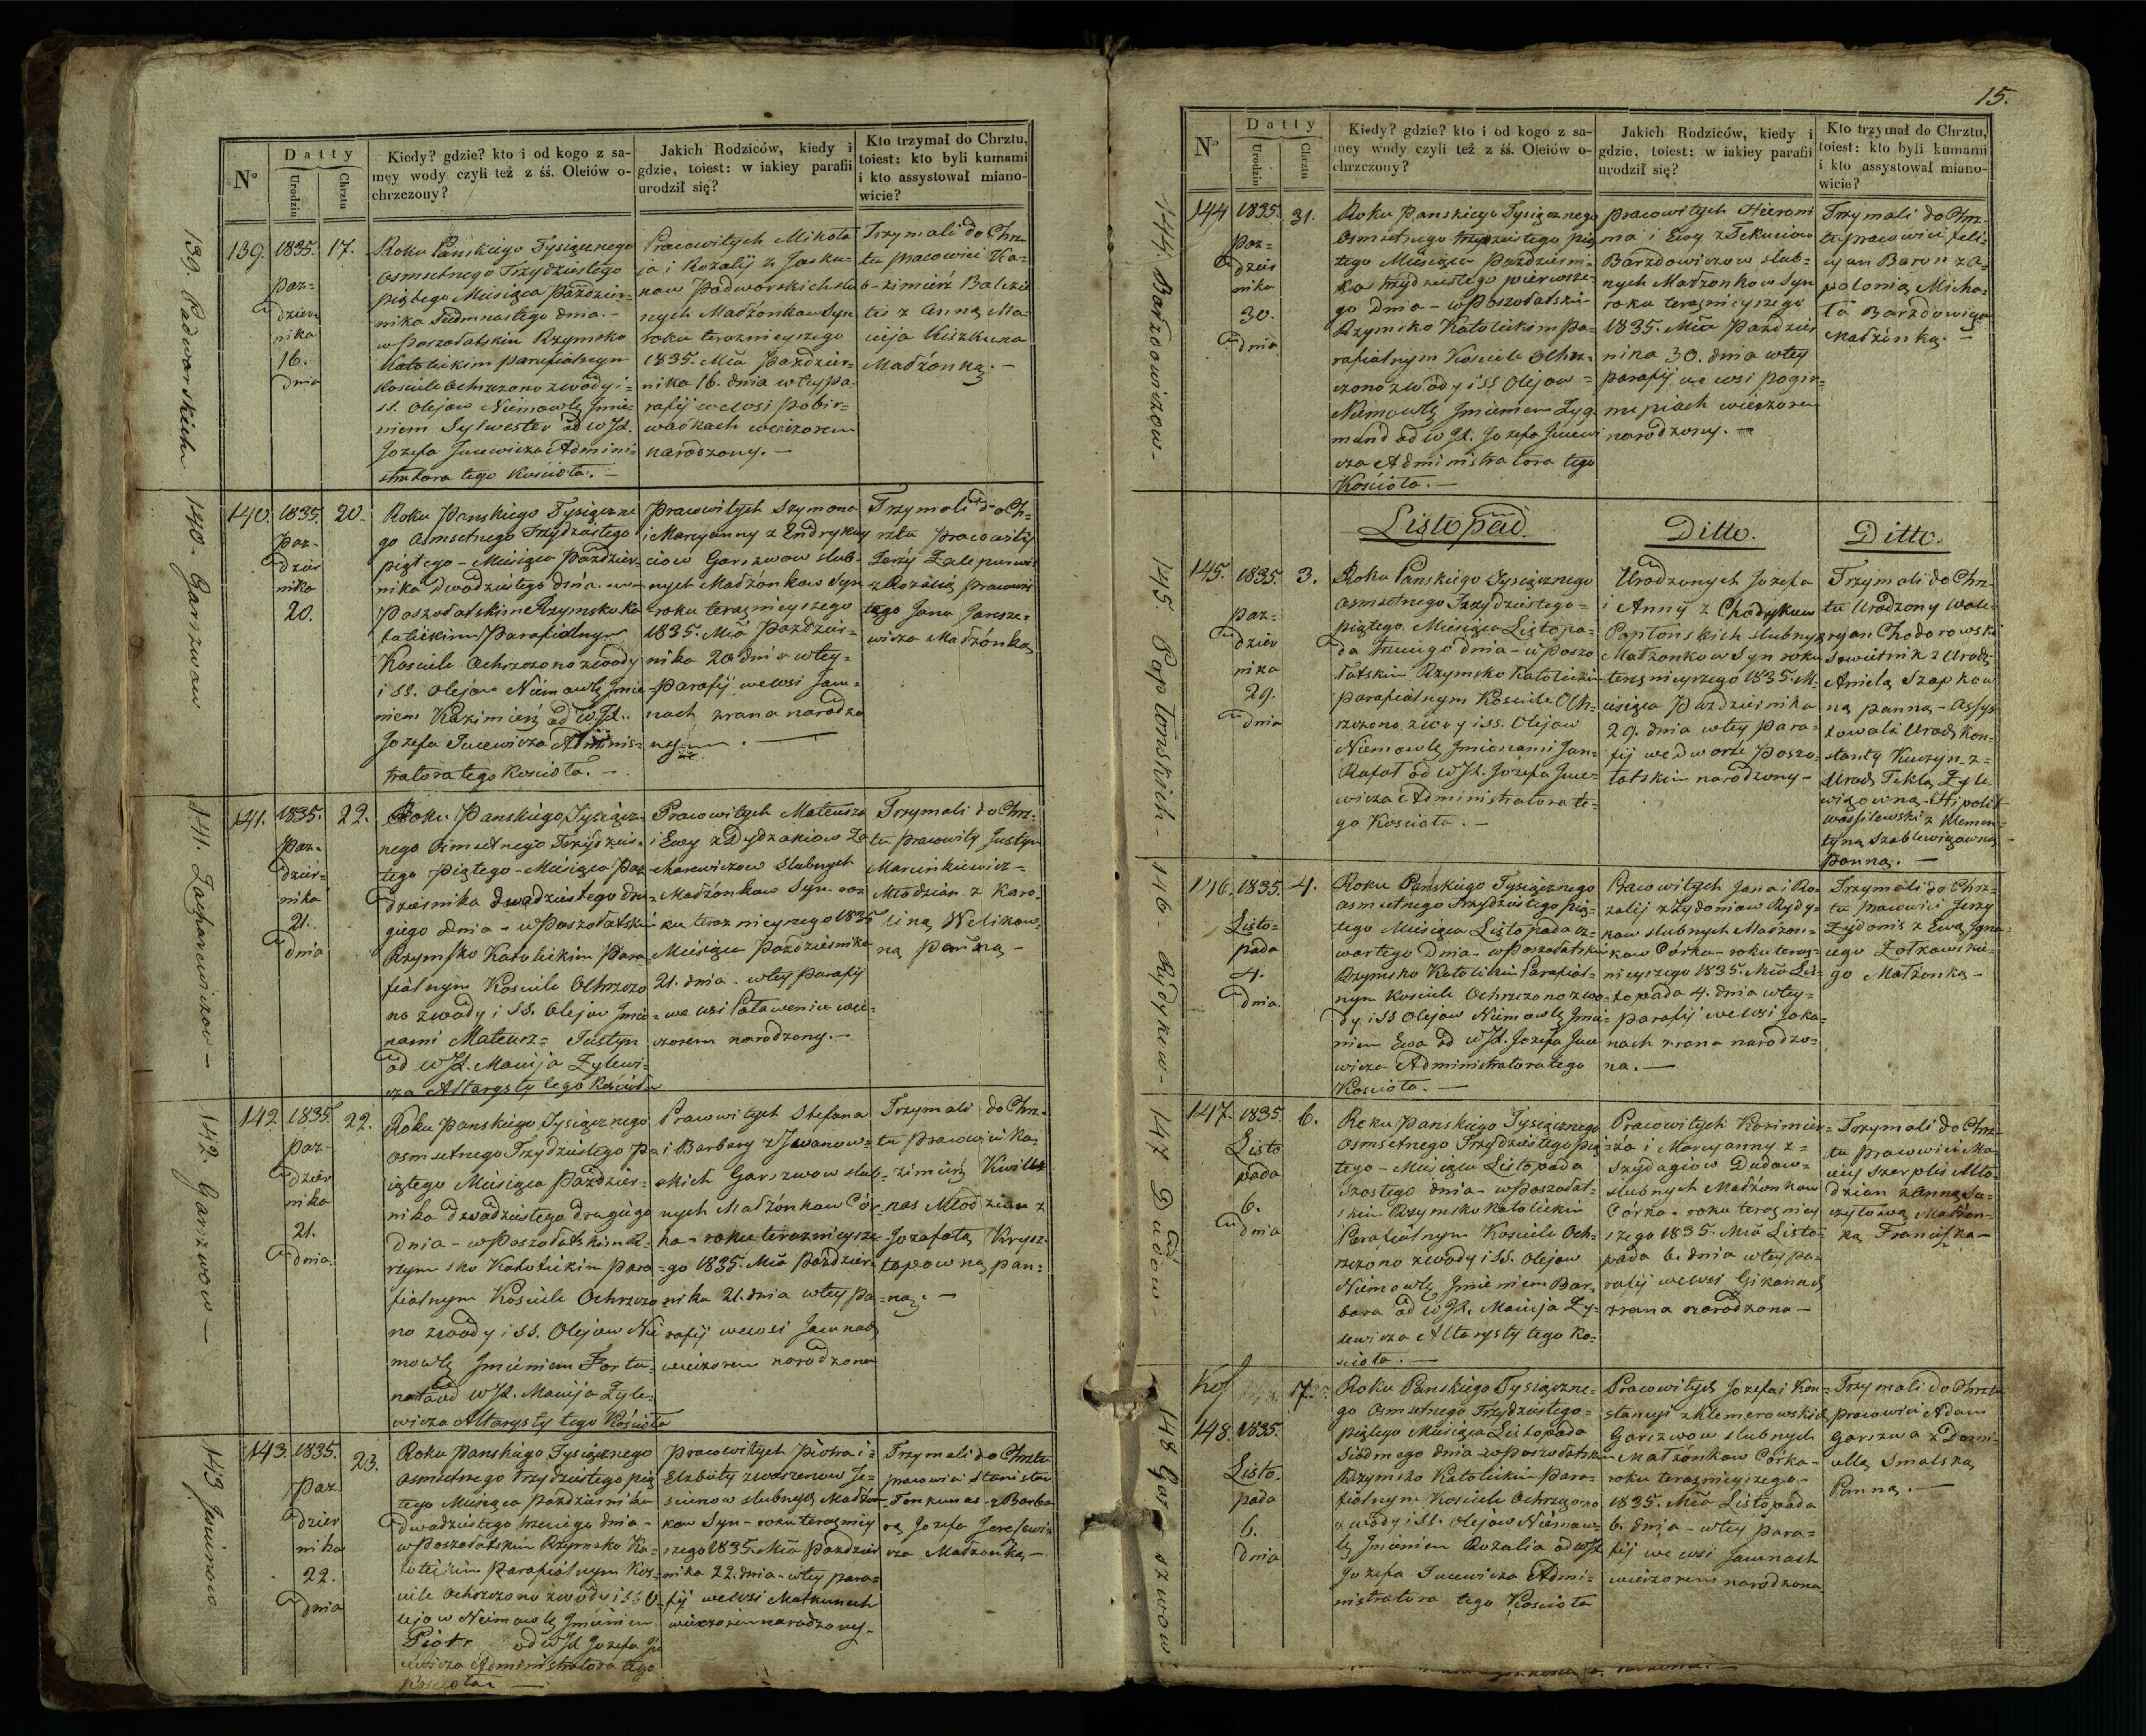 15.
Nº
Datty
Urodzin
Chrztu
Kiedy? gdzie? kto i od kogo z sa-
mey wody czyli też z śś. Oleiów o-
chrzczony?
Jakich Rodziców, kiedy i
gdzie, toiest: w iakiey parafii
urodził się?
Kto trzymał do Chrztu,
toiest: kto byli kumami
i kto assystował miano-
wicie?
139. Padworskich
139.
1835.
Paz-
dzier-
nika
16.
dnia
17.
Roku Panskiego Tysiącznego
Osmsetnego Trzydziestego
piątego Miesiąca Paździer-
nika Siedmnastego dnia.-
w Poszołatskim Rzymsko
Katolickim parafialnym
Kosciele Ochrzczono z wody i=
SS. Olejow Niemowle Jmie-
niem Sylwester od WJX.
Jozefa Jucewicza Admini-
stratora tego Kościoła.-
Pracowitych Mikoła
ja i Rozalij z
Padworskich slub
nych Małżonkow Syn
roku teraznieyszego
1835. Mca Paździer-
nika 16. dnia w tey pa-
rafij we wsi Pobir-
wackach wieczorem
narodzony.-
Trzymali do Chrz-
tu pracowici Ka-
zimierz
z Anną Ma-
cieja
Małżonką.-
140. Garszwow
140.
1835.
Paz-
dzier
nika
20.
20.
Roku Panskiego Tysiączne
go Osmsetnego Trzydziestego
piątego - Miesiąca Paździer-
nika dwudziestego dnia. w
Poszołatskim Rzymsko Ka
tolickim Parafialnym
Kosciele Ochrzczono z wody
i SS. Olejow Niemowle Jmie
niem Kazimierz od WJX.
Jozefa Jucewicza Adminis-
tratora tego Kosciola.-
Pracowitych Szymona
i Maryanny z
Garszwow slub-
nych Małżonkow Syn
roku teraznieyszego
1835. Mca Paździer-
nika 20 dnia w tey-
parafij we wsi Jaw-
nach zrana narodzo
ny.
Trzymali do Ch-
rztu pracowity
Jerzy
z Rozalią pracowi
tego Jana Jansze-
wicza Małżonką
141. Zacharewiczow-
141.
1835.
Paz-
dzier-
nika
21.
dnia
22.
Roku Panskiego Tysiącz-
nego Osmsetnego Trzydzies-
tego Piątego - Miesiąca Paz
dziernika dwudziestego dru-
giego dnia - w Poszołatskim
Rzymsko Katolickim Para-
fialnym Kosciele Ochrzczo
no z wody i SS. Olejow Jmie-
nami Mateusz= Justyn
od WJX. Macieja Żylewi-
cza Altarysty tego Kościoła
Pracowitych Mateusza
i Ewy z Dydzakiow Za
charewiczow Slubnych
Małżonkow Syn ro
ku teraznieyszego 1835
Miesiąca Pazdziernika
21. dnia w tey Parafij
we wsi Poławeniu wie-
czorem narodzony.-
Trzymali do Chrz-
tu pracowity Justyn
Marcinkiewicz-
Młodzian z Karo-
liną
ną panną-
142. Garszwow-
142
1835
Paz-
dzier
nika
21.
dnia
22.
Roku Panskiego Tysiącznego
Osmsetnego Trzydziestego P
iątego Miesiąca Paździer-
nika dwudziestego drugiego
dnia - w Poszołatskim R-
zymsko Katolickim Para-
fialnym Kosciele Ochrzczo
no z wody i SS. Olejow Nie
mowle Jmieniem Fortu-
nata od WJX. Macieja Żyle-
wicza Altarysty tego Kościoła
Pracowitych Stefana
i Barbary z Jwanow-
skich Garszwow slub-
nych Małżonkow Cór-
ka - roku teraznieysze
go 1835. Mca Paździer
nika 21. dnia w tey Pa-
rafij we wsi Jawnach
wieczorem narodzona
Trzymali do Chrz-
tu pracowici Ka-
zimierz
Młodzian z
Jozefatą
pan-
ną.-
143
143.
1835.
Paz
dzier
nika
22.
dnia
23.
Roku Panskiego Tysiącznego
Osmsetnego Trzydziestego pią
tego Miesiąca Pazdziernika
dwudziestego trzeciego dnia-
w Poszołatskim Rzymsko Ka-
tolickim Parafialnym Kos-
ciele Ochrzczono z wody i SS O-
lejow Niemowle Jmieniem
Piotr od WJX Jozefa Ju
cewicza Administratora tego
Kościoła
Pracowitych Piotra i-
Elzbiety
slubnych Małżon
kow Syn - roku teraźniey
szego 1835. Mca Pazdzier
nika 22. dnia - w tey para-
fij we wsi Matkunach
wieczorem narodzony-
Trzymali do Chrztu
pracowici Stanisław
Tonkunas z Barba
rą Jozefa
Małżonką-
Nº
Datty
Urodzin
Chrztu
Kiedy? gdzie? kto i od kogo z sa-
mey wody czyli też z śś. Oleiów o-
chrzczony?
Jakich Rodziców, kiedy i
gdzie, toiest: w iakiey parafii
urodził się?
Kto trzymał do Chrztu,
toiest: kto byli kumami
i kto assystował miano-
wicie?
144. Barzdowiczow-
144
1835.
Paz-
dzier
nika
30.
dnia
31.
Roku Panskiego Tysiącznego
Osmsetnego trzydziestego pią
tego Miesiąca Pazdzierni-
ka trzydziestego pierwsze-
go Dnia - w Poszołatskim
Rzymsko Katolickim Pa-
rafialnym Kosciele Ochrz-
czono z wody i SS Olejow-
Niemowle Jmieniem Zyg
mund od WJX. Jozefa Jucewi
cza Administratora tego
Kościoła.-
Pracowitych Hieroni
ma i Ewy z Tekuciow
Barzdowiczow slub-
nych Małżonkow Syn
roku teraznieyszego
1835. Mca Paździer
nika 30. dnia w tey
parafij we wsi Pogir-
nupiach wieczorem
narodzony.-
Trzymali do Chrz-
tu pracowici Feli-
cyan Baron z A-
polonią Micha-
ła Barzdowicza
Małżonką.-
Listopad.
Ditto.
Ditto.
145. Poplonskich-
145.
1835.
Paz-
dzier
nika
29.
dnia
3.
Roku Panskiego Tysiącznego
Osmsetnego Trzydziestego-
piątego Miesiąca Listopa-
da trzeciego dnia - w Poszo
łatskim Rzymsko Katolickim
parafialnym Kosciele Och-
rzczono z wody i SS. Olejow
Niemowle Jmionami Jan-
Rafał od WJX. Jozefa Juce-
wicza Administratora te-
go Kosciola.-
Urodzonych Jozefa
i Anny z Chodykow
Poplonskich slubnych
Małżonkow Syn roku
teraznieyszego 1835. M-
iesiąca Pazdziernika
29. dnia w tey Para-
fij we Dworze Poszo-
łatskim narodzony-
Trzymali do Chrz-
tu Urodzony Wale-
ryan Chodorowski
Sowietnik z Urodz-
Anielą Szapkow
ną panną - Assys
towali Urodz Kon-
stanty Kuczyn z-
Urodz Teklą Żyle
wiczowną - Hipolit
Wassilewski z Klemen-
tyną Szablewiczowną
Panną.-
146 Rydykow-
146.
1835.
Listo-
pada
4.
dnia.
4.
Roku Panskiego Tysiącznego
Osmsetnego Trzydziestego pią-
tego Miesiąca Listopada cz-
wartego Dnia - w Poszołatskim
Rzymsko Katolickim Parafial-
nym Kosciele Ochrzczono z wo-
dy i SS Olejow Niemowle Jmie-
niem Ewa od WJX. Jozefa Juce
wicza Administratora tego
Kosciola.-
Pracowitych Jana i Ro-
zalij z Żydoniow Rydy-
kow slubnych Małżon-
kow Córka - roku teraz-
nieyszego 1835. Mca Lis-
topada 4. dnia w tey-
parafij we wsi Joka-
nach zrana narodzo-
na.-
Trzymali do Chrz-
tu Pracowici Jerzy
Żydonis z Ewą Jgna-
cego Żołkowskie-
go Małżonką-
147 Dudow-
147.
1835
Listo
pada
6.
dnia
6.
Roku Panskiego Tysiącznego
Osmsetnego Trzydziestego pią-
tego - Miesiąca Listopada
szostego dnia - w Poszołat-
skim Rzymsko Katolickim
Parafialnym Kosciele Och-
rzczono z wody i SS. Olejow
Niemowle Jmieniem Bar-
bara od WJX. Macieja Ży-
lewicza Altarysty tego Ko-
sciola.-
Pracowitych Kazimier-
za i Maryanny z-
Szydagiow Dudow-
slubnych Małżonkow
Córka - roku teraźniey
szego 1835. Mca Listo-
pada 6. dnia w tey pa-
rafij we wsi Gikanach
zrana narodzona-
Trzymali do Chrz-
tu pracowici Ma-
ciey Szerplis Mło-
dzian z Anną
Małżon-
ką Franciszka-
148 Garszwow
148.
1835.
Listo-
pada
6.
dnia
7.
Roku Panskiego Tysiączne-
go Osmsetnego Trzydziestego-
piątego Miesiąca Listopada
Siódmego dnia - w Poszołatskim
Rzymsko Katolickim Para-
fialnym Kosciele Ochrzczono
z wody i SS. Olejow Niemow-
le Jmieniem Rozalia od WJX
Jozefa Jucewicza Admi-
nistratora tego Kosciola
Pracowitych Jozefa i Kon-
stancyi z Klemerowskich
Garszwow slubnych
Małżonkow Córka-
roku teraznieyszego-
1835. Mca Listopada
6. dnia - w tey Para-
fij we wsi Jawnach
wieczorem narodzona
Trzymali do Chrztu
pracowici Adam
Garszwa z Domi-
cellą Smalską
Panną.-